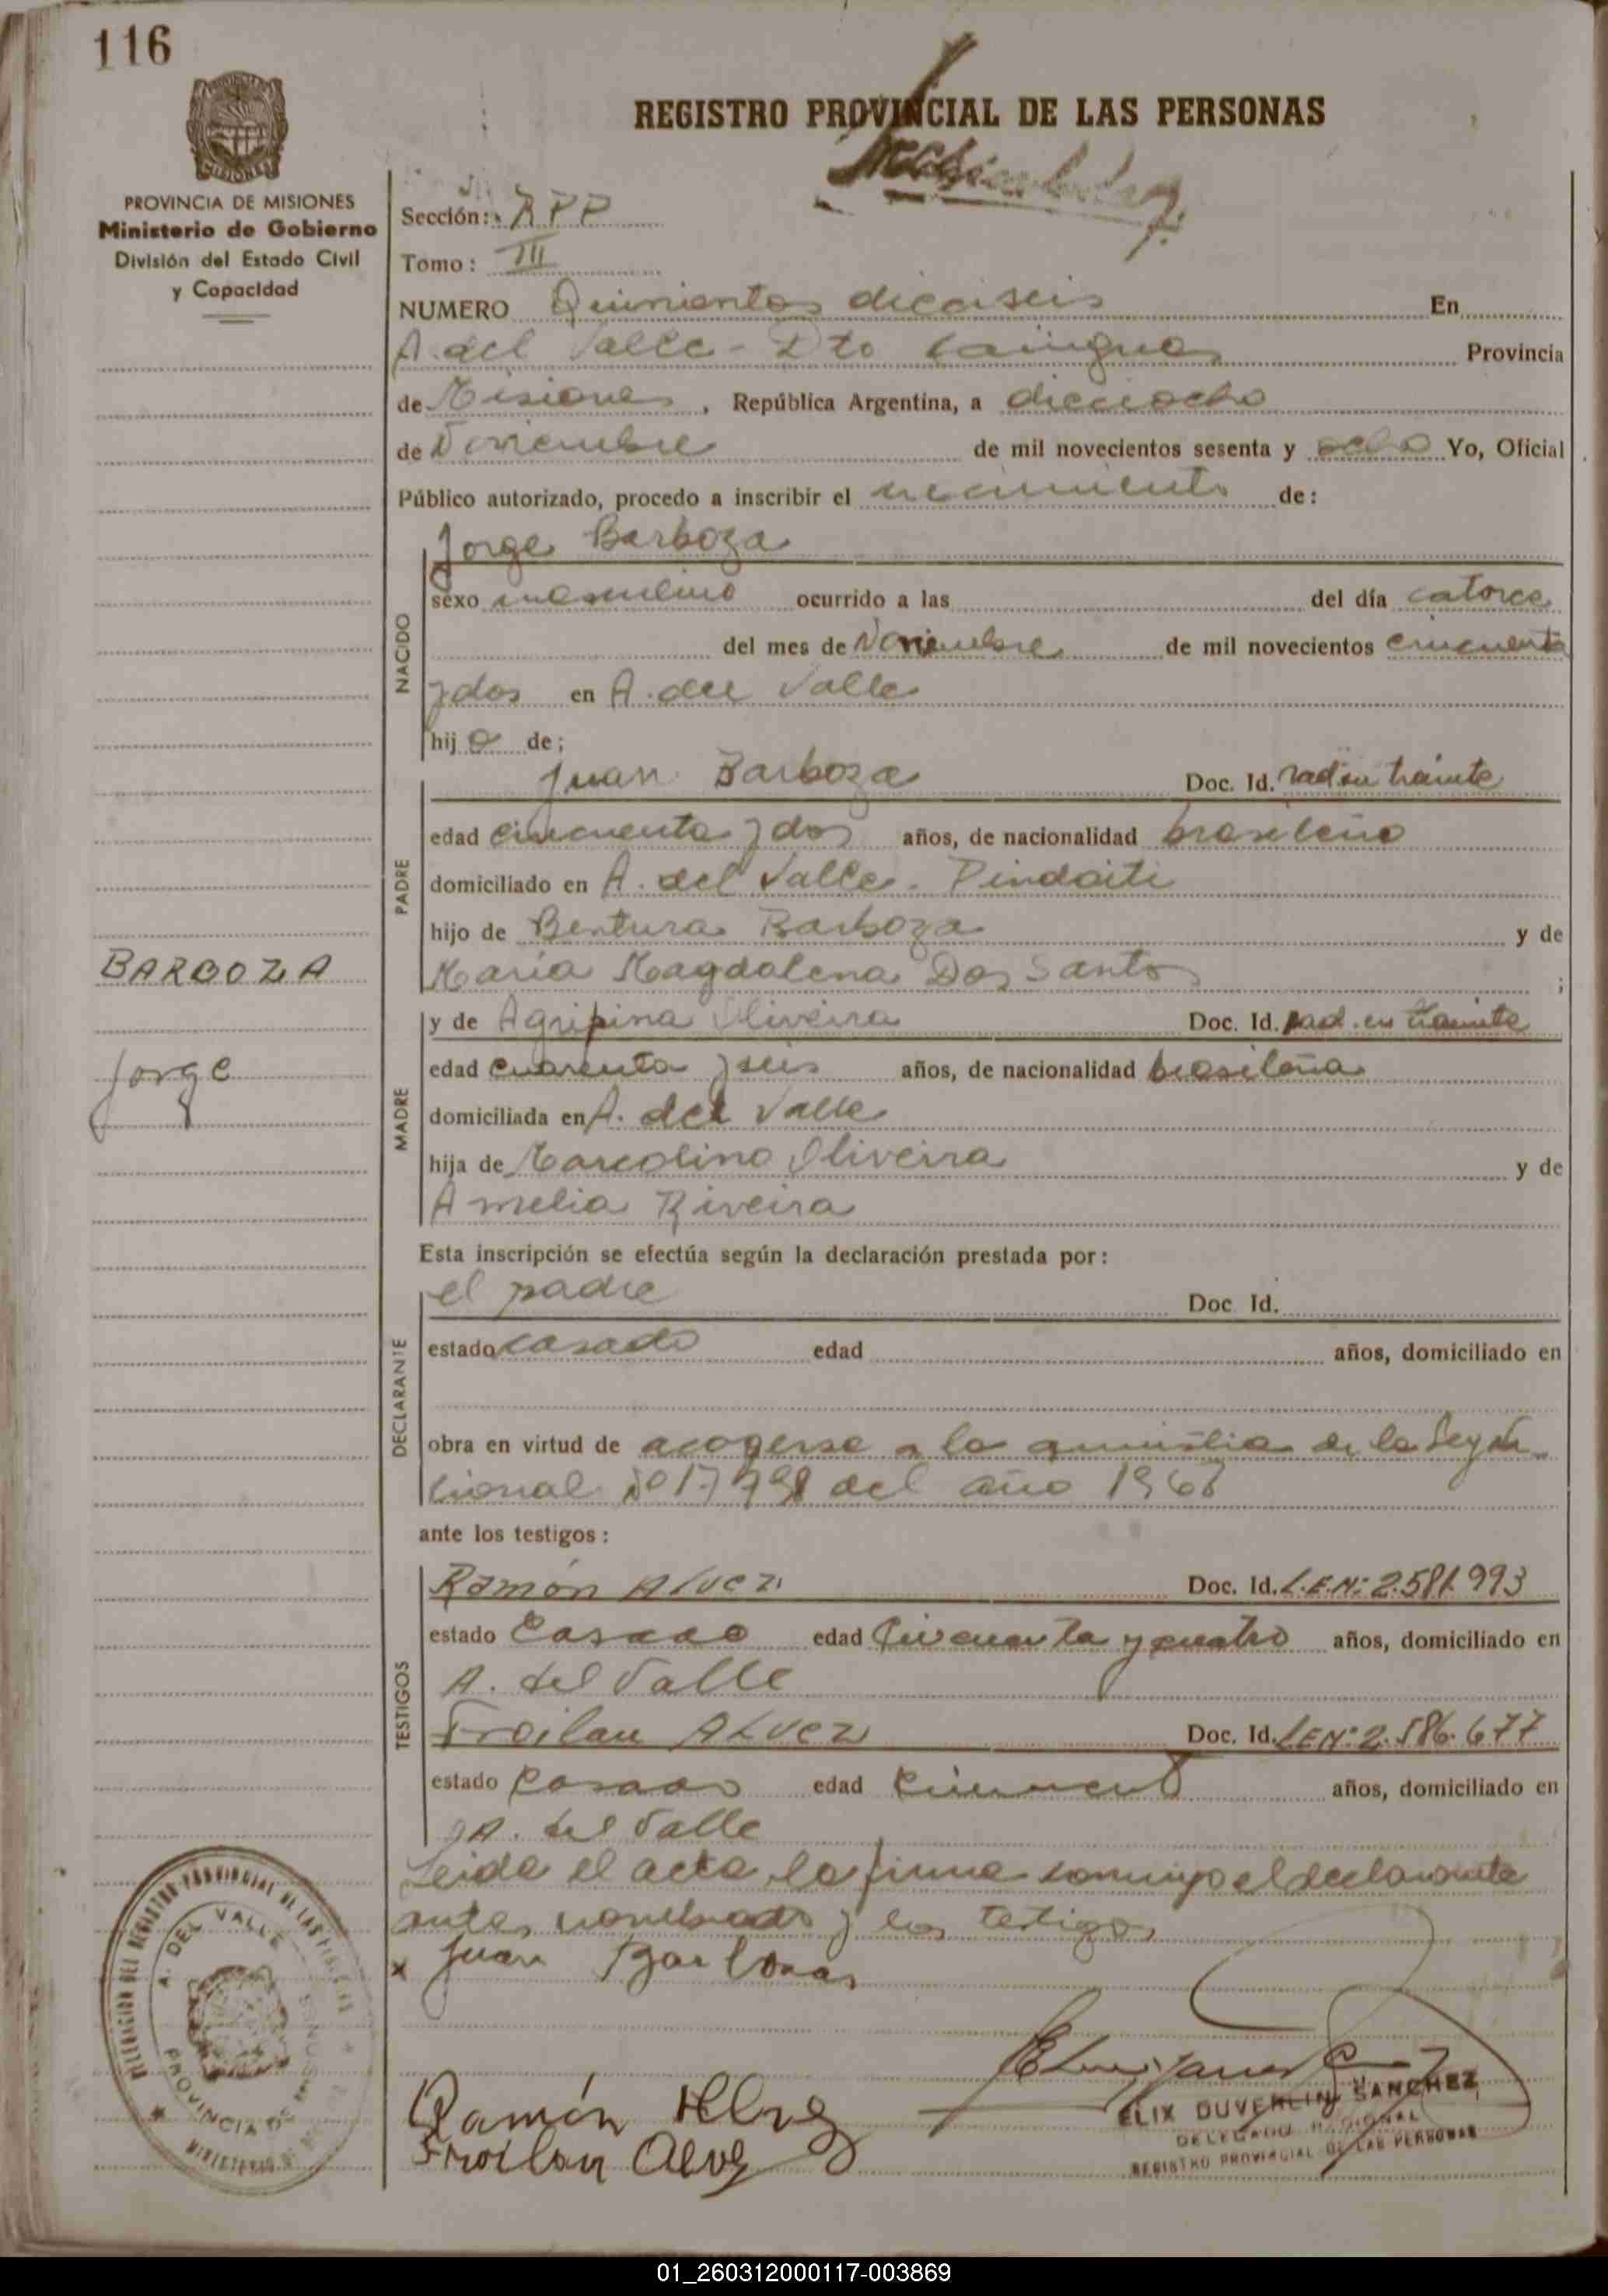 116
REGISTRO PROVINCIAL DE LAS PERSONAS
MISIONES
PROVINCIA DE MISIONES
Ministerio de Gobierno
División del Estado Civil
y Capacidad
Sección:
Tomo: III
NUMERO Quinientos dieciseis En
A. del Valle - Dto Cainguas Provincia
de Misiones, República Argentina, a dieciocho
de Noviembre de mil novecientos sesenta y ocho Yo, Oficial
Público autorizado, procedo a inscribir el nacimiento de:
Jorge Barboza
NACIDO
sexo masculino ocurrido a las del día catorce
del mes de Noviembre de mil novecientos cincuenta
y dos en A. del Valle
hijo de;
PADRE
Juan Barboza Doc. Id. rad. en trámite
edad cincuenta y dos años, de nacionalidad brasileño
domiciliado en A. del Valle - Pindaiti
hijo de Bentura Barboza y de
Maria Magdalena Dos Santos ;
BARBOZA
Jorge
MADRE
y de Agripina Oliveira Doc. Id. rad. en trámite
edad cuarenta y seis años, de nacionalidad brasileña
domiciliada en A. del Valle
hija de Marcolino Oliveira y de
Amelia Riveira
Esta inscripción se efectúa según la declaración prestada por:
DECLARANTE
el padre Doc. Id.
estado casado edad años, domiciliado en
obra en virtud de acogerse a la amnistia de la Ley Na
cional No 17.798 del año 1968
ante los testigos:
TESTIGOS
Ramón Alvez Doc. Id. L.E.Nº 2.581.993
estado Casado edad Cincuenta y cuatro años, domiciliado en
A. del Valle
Froilan ALVEZ Doc. Id. LENº 2.586.677
estado Casado edad Cincuenta años, domiciliado en
A. del Valle
Leida el acta la firma conmigo el declarante
antes nombrado y los testigos
x Juan Barbozas
Ramón Alvez
Froilan Alvez
ELIX DUVERLIN SANCHEZ
DELEGADO REGIONAL
REGISTRO PROVINCIAL DE LAS PERSONAS
DELEGACION DEL REGISTRO PROVINCIAL DE LAS PERSONAS
A. DEL VALLE
PROVINCIA DE MISIONES
01_260312000117-003869